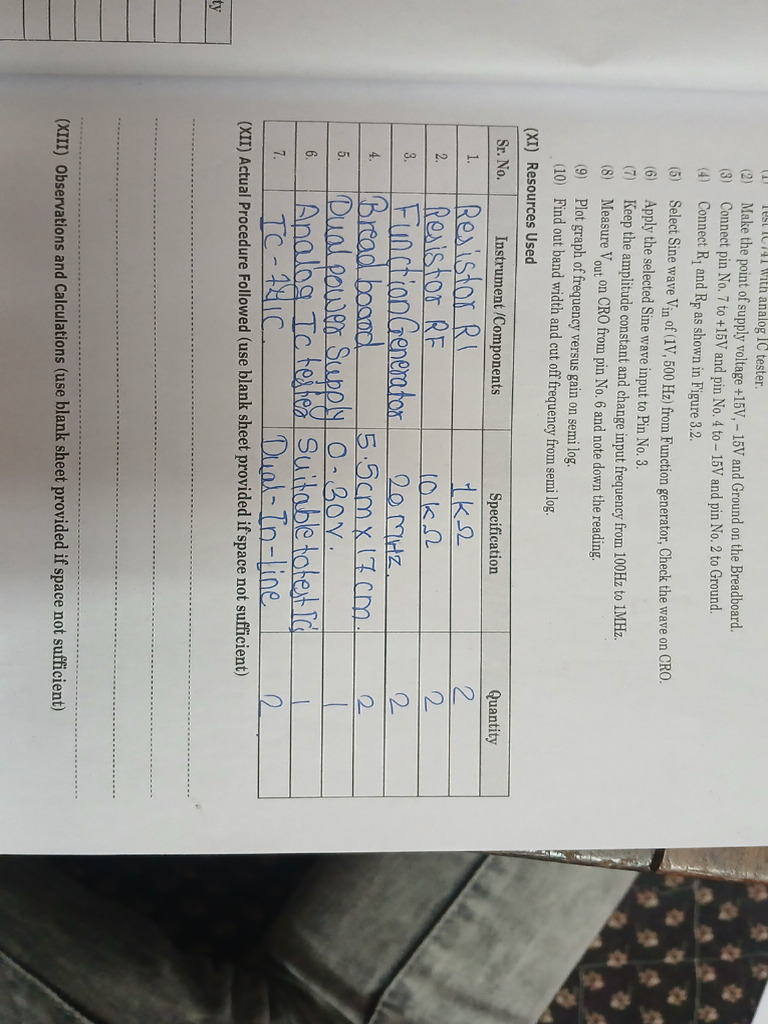 ty
(1) Test IC741 with analog IC tester.
(2) Make the point of supply voltage +15V, – 15V and Ground on the Breadboard.
(3) Connect pin No. 7 to +15V and pin No. 4 to – 15V and pin No. 2 to Ground.
(4) Connect R1 and RF as shown in Figure 3.2.
(5) Select Sine wave Vin of (1V, 500 Hz) from Function generator, Check the wave on CRO.
(6) Apply the selected Sine wave input to Pin No. 3.
(7) Keep the amplitude constant and change input frequency from 100Hz to 1MHz.
(8) Measure Vout on CRO from pin No. 6 and note down the reading.
(9) Plot graph of frequency versus gain on semi log.
(10) Find out band width and cut off frequency from semi log.
(XI) Resources Used
Sr. No. Instrument /Components Specification Quantity
1. Resistor R1 1kΩ 2
2. Resistor RF 10kΩ 2
3. Function Generator 20 MHz. 2
4. Bread board 5.5cm x 17 cm. 2
5. Dual power Supply 0-30V. 1
6. Analog Ic tester Suitable to test Ic 1
7. IC-741C. Dual-In-line 2
(XII) Actual Procedure Followed (use blank sheet provided if space not sufficient)
(XIII) Observations and Calculations (use blank sheet provided if space not sufficient)